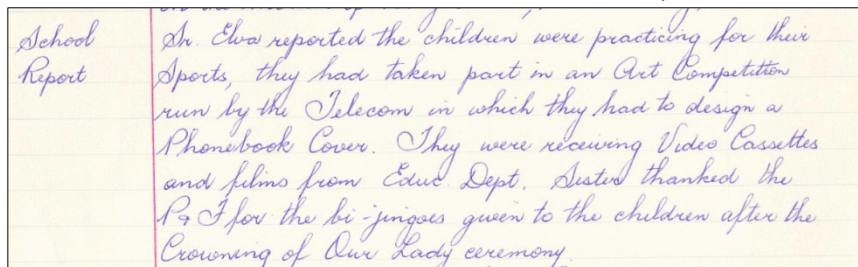 School Report
Sr. Elva reported the children were practicing for their
Sports, they had taken part in an Art Competition
run by the Telecom in which they had to design a
Phonebook Cover. They were receiving Video Cassettes
and films from Educ. Dept. Sister thanked the
P & F for the bi-jingoes given to the children after the
Crowning of Our Lady ceremony.